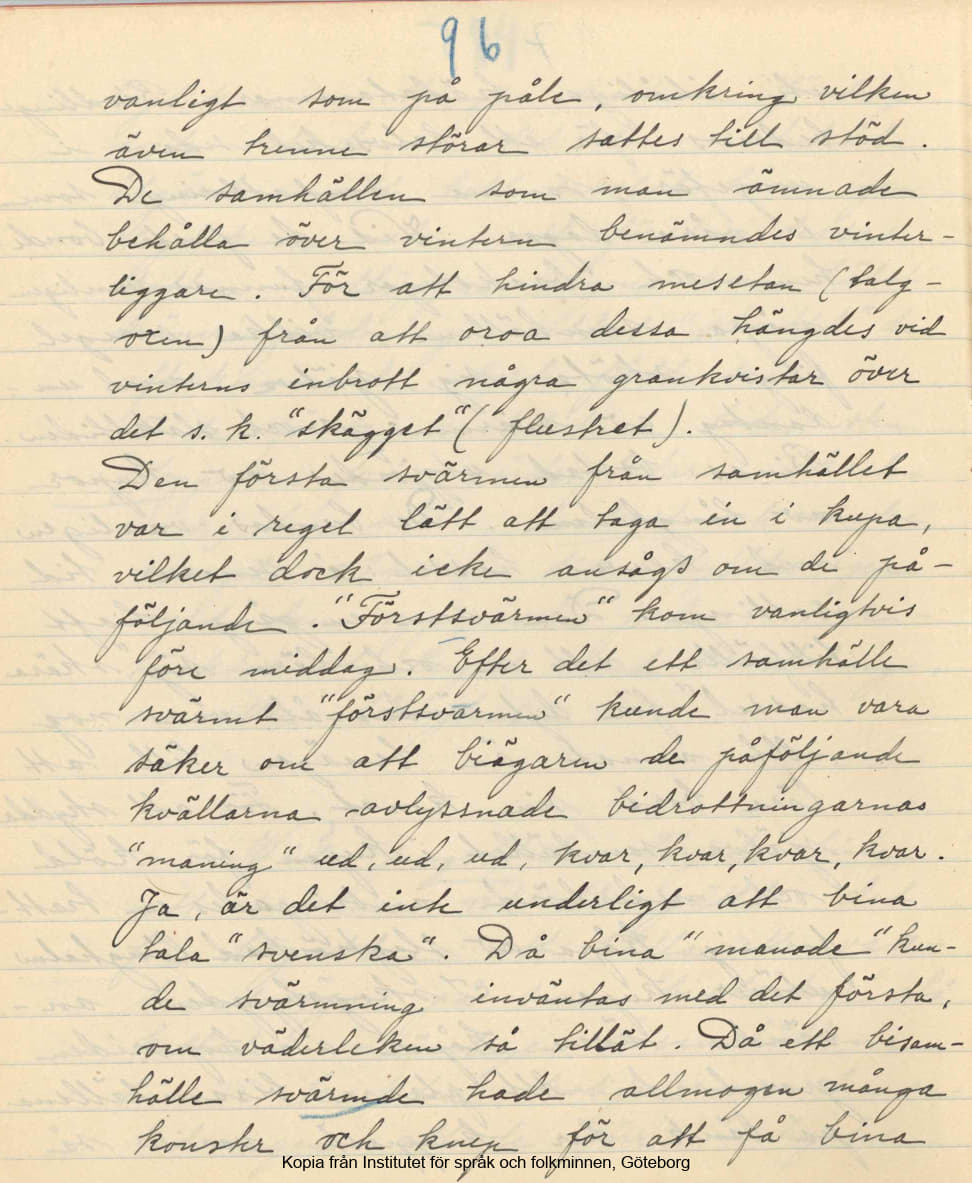 96
vanligt som på påle, omkring vilken
även trenne störar sattes till stöd.
De samhällen som man ämnade
behålla över vintern benämndes vinter-
liggare. För att hindra mesetan (talg-
oxen) från att oroa dessa hängdes vid
vinterns inbrott några grankvistar över
det s. k. "skägget" (flustret).
Den första svärmen från samhället
var i regel lätt att taga in i kupa,
vilket dock icke ansågs om de på-
följande. "Förstsvärmen" kom vanligtvis
före middag. Efter det ett samhälle
svärmt "förstsvärmen" kunde man vara
säker om att biägaren de påföljande
kvällarna avlyssnade bidrottningarnas
"maning" ud, ud, ud, kvar, kvar, kvar, kvar.
Ja, är det inte underligt att bina
tala "svenska". Då bina "manade" kun-
de svärmning inväntas med det första,
om väderleken så tillät. Då ett bisam-
hälle svärmde hade allmogen många
konster och knep för att få bina
Kopia från Institutet för språk och folkminnen, Göteborg